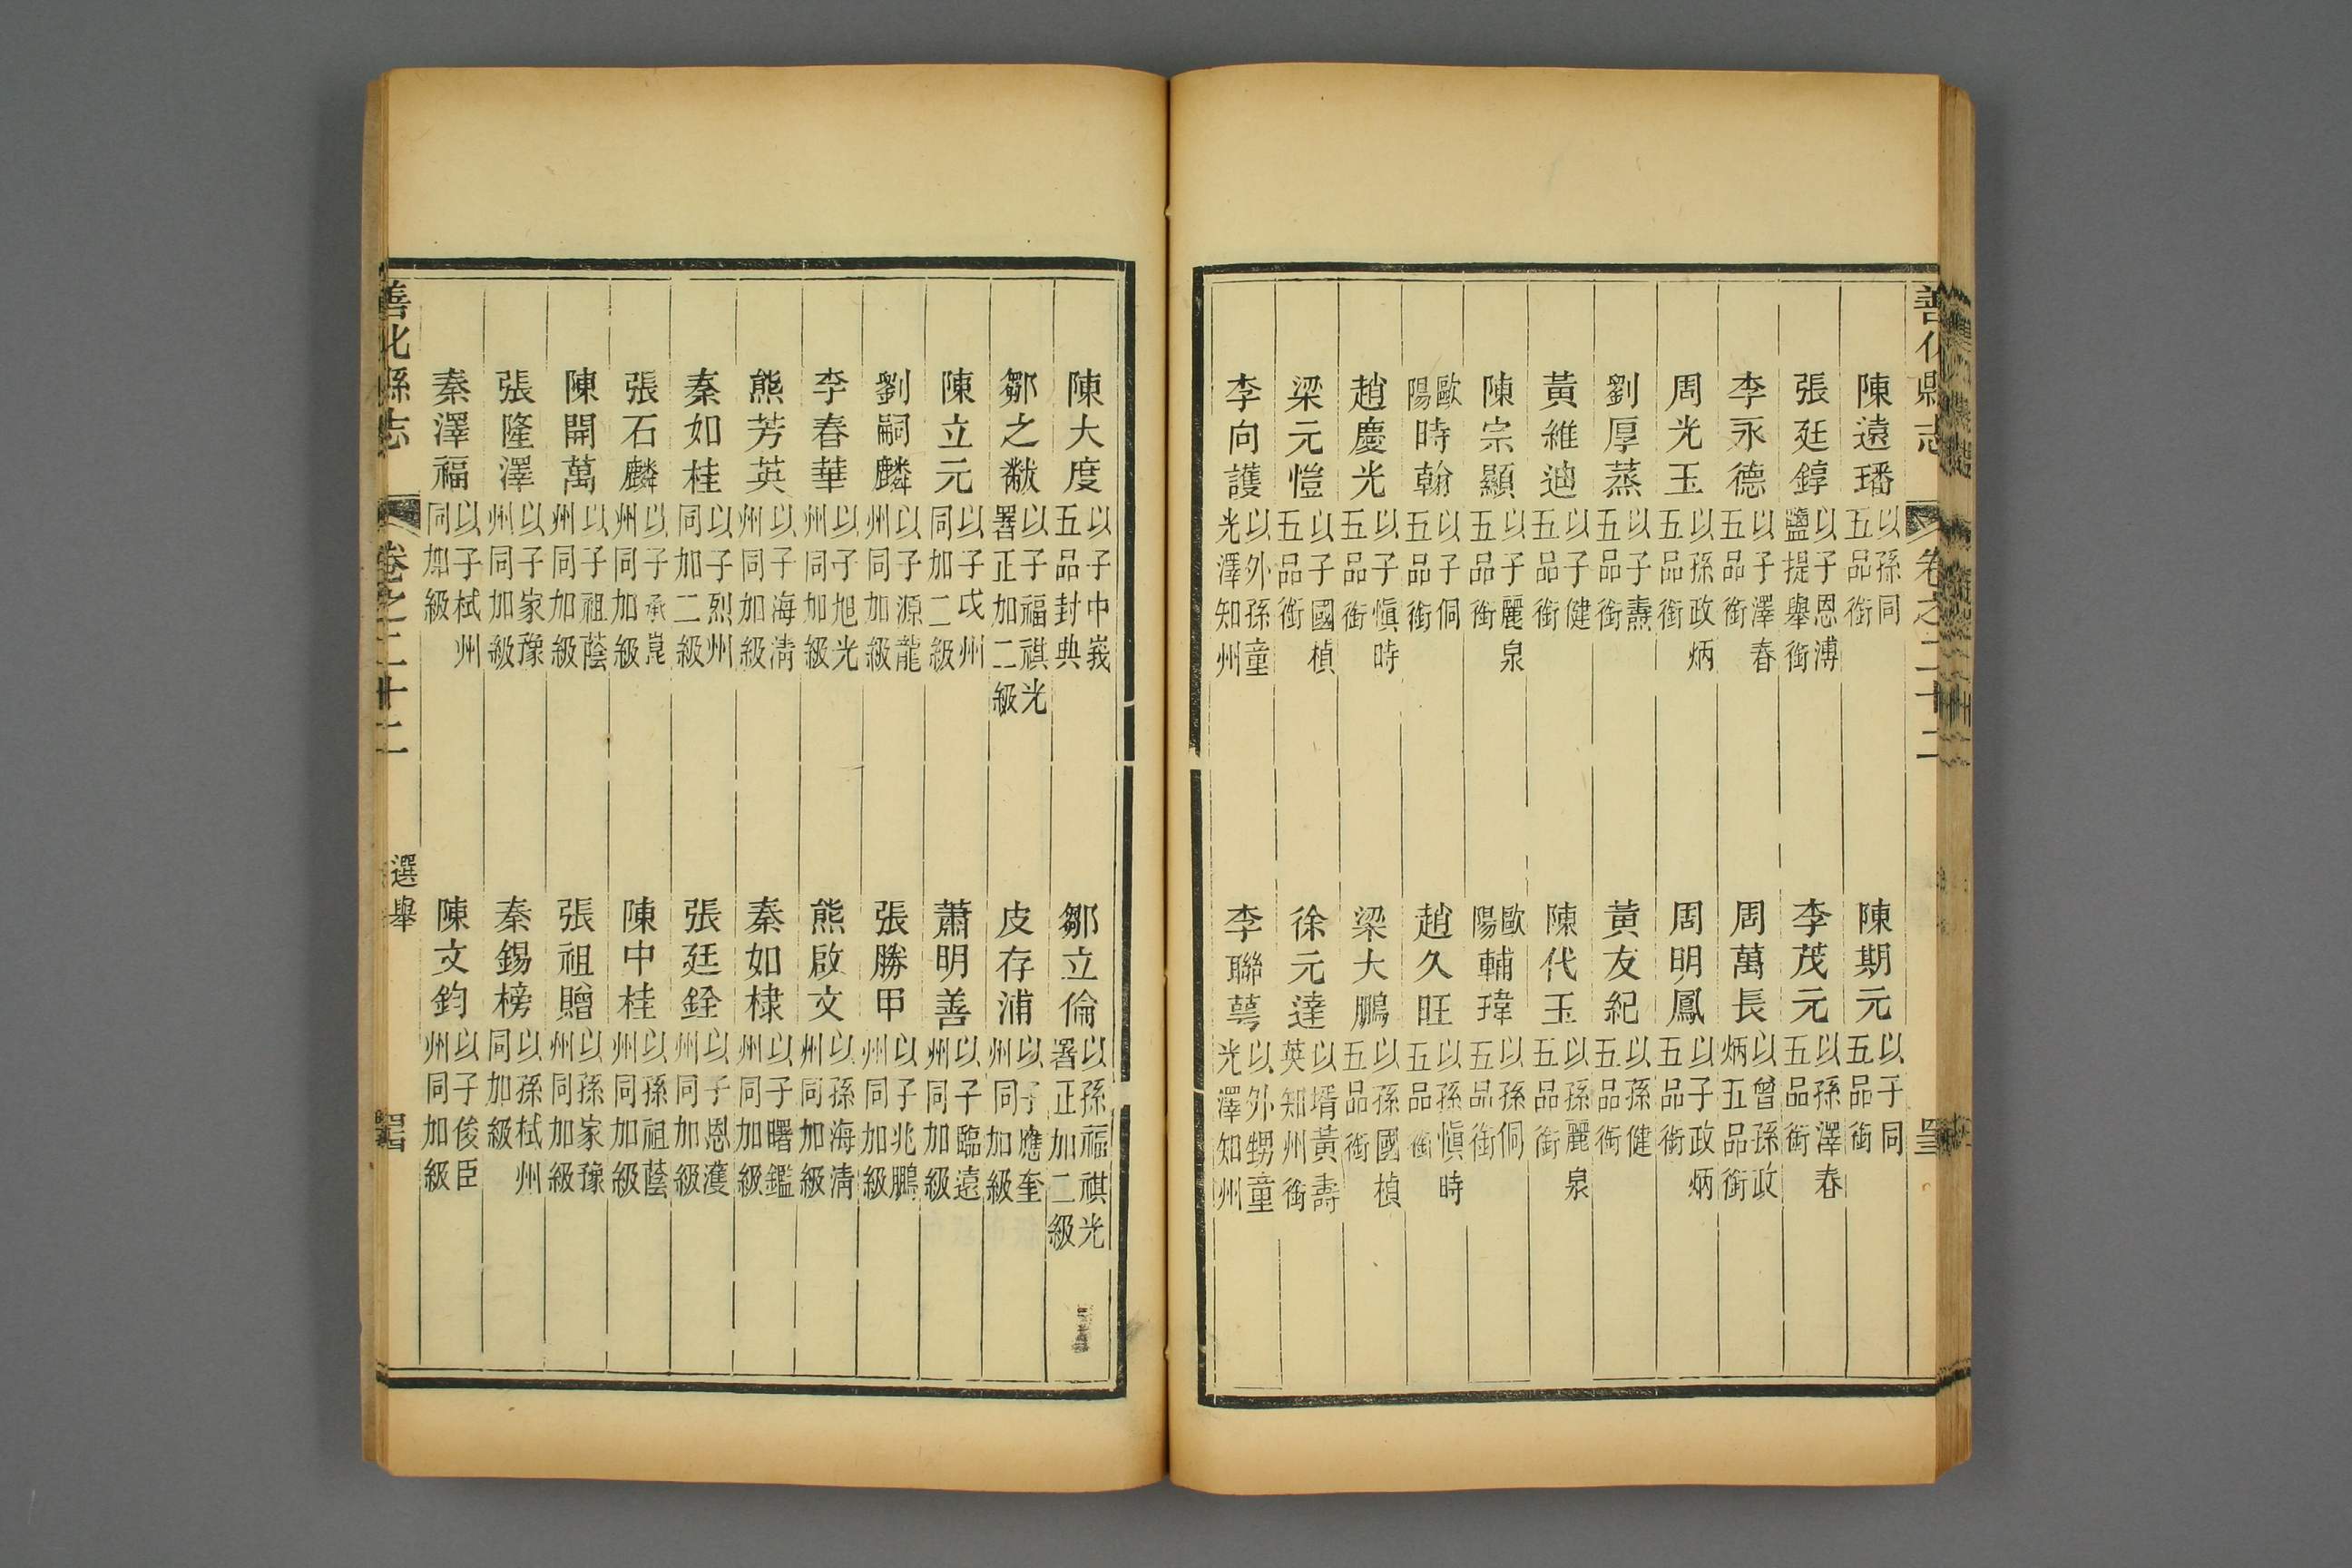 善化縣志 卷之二十二
陳遠璠 以孫同五品銜 陳期元 以子同五品銜
張廷錞 以子恩溥鹽提舉銜 李茂元 以孫澤春五品銜
李永德 以子澤春五品銜 周萬長 以曾孫政炳五品銜
周光玉 以孫政炳五品銜 周明鳳 以子政炳五品銜
劉厚蒸 以子燾五品銜 黃友紀 以孫健五品銜
黃維迪 以子健五品銜 陳代玉 以孫麗泉五品銜
陳宗顯 以子麗泉五品銜 歐陽輔瑋 以孫侗五品銜
歐陽時翰 以子侗五品銜 趙久旺 以孫愼時五品銜
趙慶光 以子愼時五品銜 梁大鵬 以孫國楨五品銜
梁元愷 以子國楨五品銜 徐元達 以壻黃壽英知州銜
李向護 以外孫童光澤知州 李聯萼 以外甥童光澤知州
陳大度 以子中峩五品封典 鄒立倫 以孫福祺光署正加二級
鄒之黻 以子福祺光署正加二級 皮存浦 以子應奎州同加級
陳立元 以子戉州同加二級 蕭明善 以子臨遠州同加級
劉嗣麟 以子源龍州同加級 張勝甲 以子兆鵬州同加級
李春華 以子旭光州同加級 熊啟文 以孫海清州同加級
熊芳英 以子海清州同加級 秦如棣 以子曙鑑州同加級
秦如桂 以子烈州同加二級 張廷銓 以子恩濩州同加級
張石麟 以子承崑州同加級 陳中桂 以孫祖蔭州同加級
陳開萬 以子祖蔭州同加級 張祖贈 以孫家豫州同加級
張隆澤 以子家豫州同加級 秦錫榜 以孫栻州同加級
秦澤福 以子栻州同加級 陳文鈞 以子俊臣州同加級
善化縣志 卷之二十二 選舉